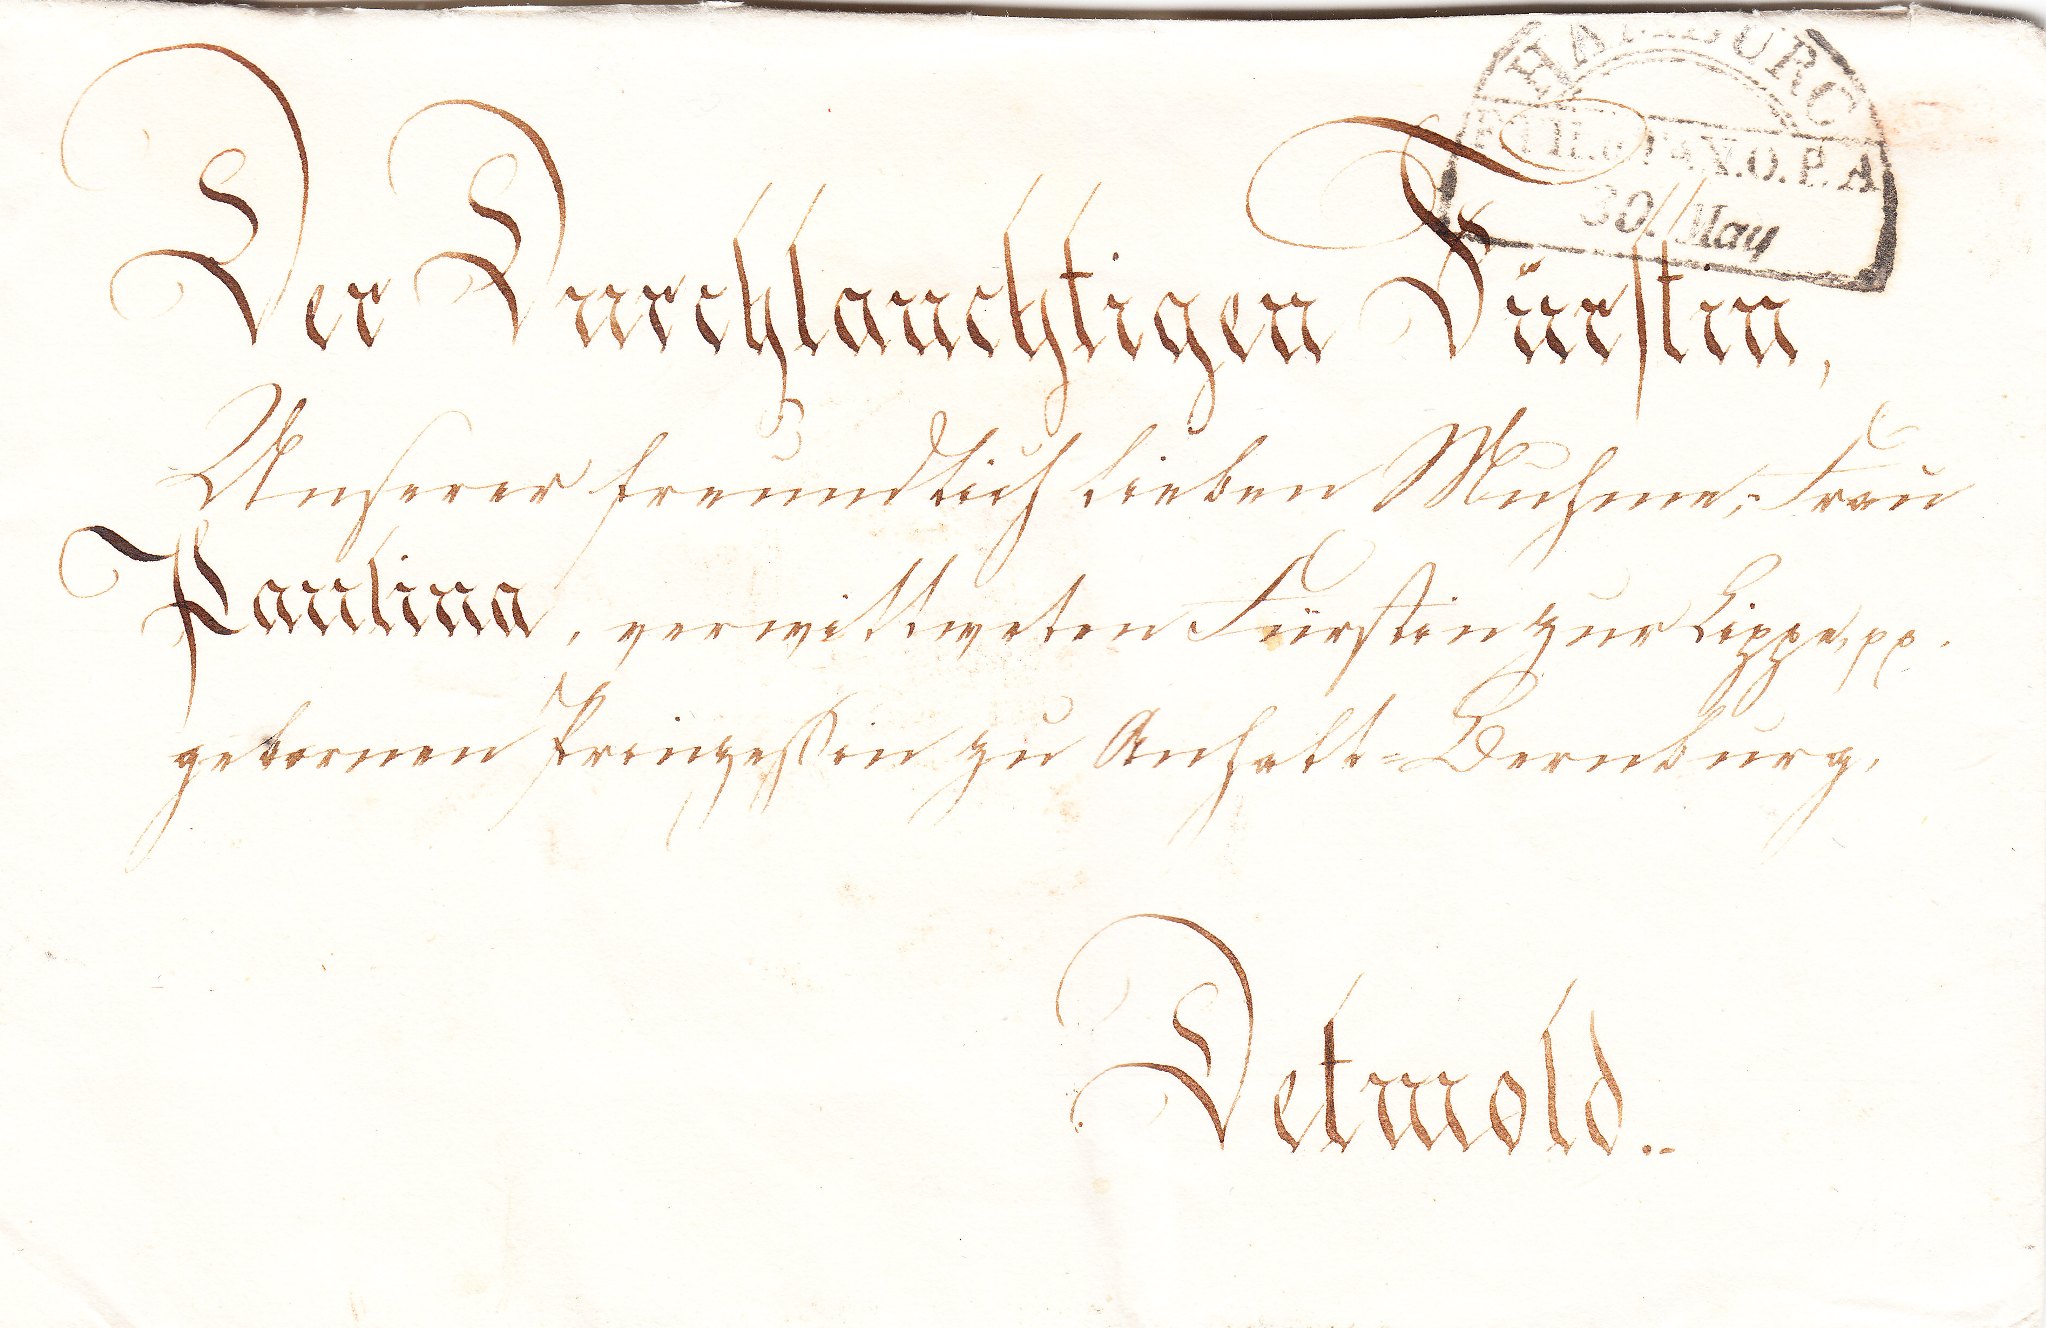 HAMBURG
TH.U.TAX.O.P.A
30. May
Der Durchlauchtigen Fürstin,
Unserer freundlich lieben Muhme, Frau
Paulina, verwittweten Fürstin zur Lippe, pp.
gebornen Prinzessin zu Anhalt=Bernburg,
Detmold..